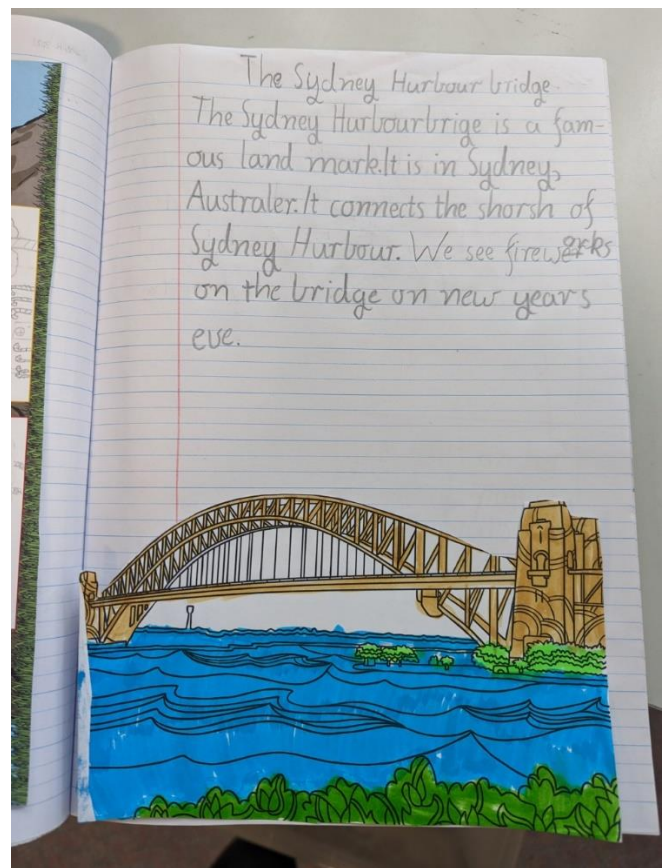 The Sydney Hurbour bridge
The Sydney Hurbourbrige is a fam-
ous land mark.It is in Sydney,
Australer.It connects the shorsh of
Sydney Hurbour. We see fireworks
on the bridge on new years
eve.